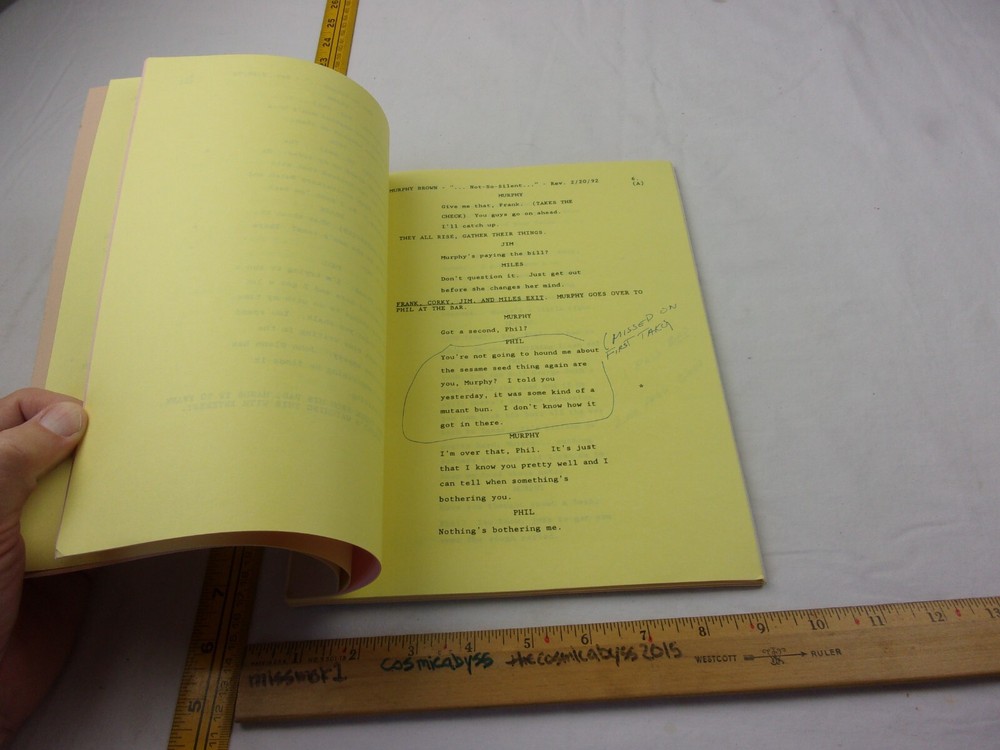 MURPHY BROWN - "... Not-So-Silent..." - Rev. 2/20/92
4.
(A)
MURPHY
Give me that, Frank. (TAKES THE
CHECK) You guys go on ahead.
I'll catch up.
THEY ALL RISE, GATHER THEIR THINGS.
JIM
Murphy's paying the bill?
MILES
Don't question it. Just get out
before she changes her mind.
FRANK, CORKY, JIM, AND MILES EXIT. MURPHY GOES OVER TO
PHIL AT THE BAR.
MURPHY
Got a second, Phil?
(MISSED ON
FIRST TAKE)
PHIL
You're not going to hound me about
the sesame seed thing again are
you, Murphy? I told you
yesterday, it was some kind of a
mutant bun. I don't know how it
got in there.
MURPHY
I'm over that, Phil. It's just
that I know you pretty well and I
can tell when something's
bothering you.
PHIL
Nothing's bothering me.
23 24 25 26
5 6 7
11 12 13
1 2 3 4 5 6 7 8 9 10 11 12 13
missmof1 cosmicabyss thecosmicabyss2015
WESTCOTT RULER